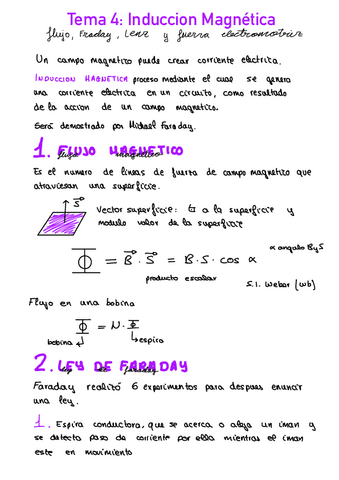 Tema 4: Induccion Magnética
flujo, Faraday, Lenz y fuerza electromotriz
Un campo magnetico puede crear corriente electrica.
INDUCCION MAGNETICA proceso mediante el cual se genera
una corriente electrica en un circuito, como resultado
de la accion de un campo magnetico.
Será demostrado por Michael Faraday.
1. FLUJO MAGNETICO
flujo magnético
Es el numero de lineas de fuerza de campo magnetico que
atraviesan una superficie.
S⃗
Vector superficie: ⊥ a la superficie y
modulo valor de la superficie
α angulo B y S
Φ = B⃗ · S⃗ = B · S · cos α
producto escalar
S.I. Weber (Wb)
Flujo en una bobina
Φ = N · Φ
bobina
espira
2. LEY DE FARADAY
ley de faraday
Faraday realizó 6 experimentos para despues enunciar
una ley.
1. Espira conductora, que se acerca o aleja un iman y
se detecta paso de corriente por ella mientras el iman
este en movimiento